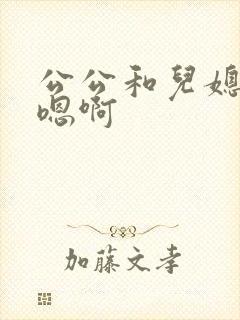 公公和兒媳
嗯啊
加藤文孝